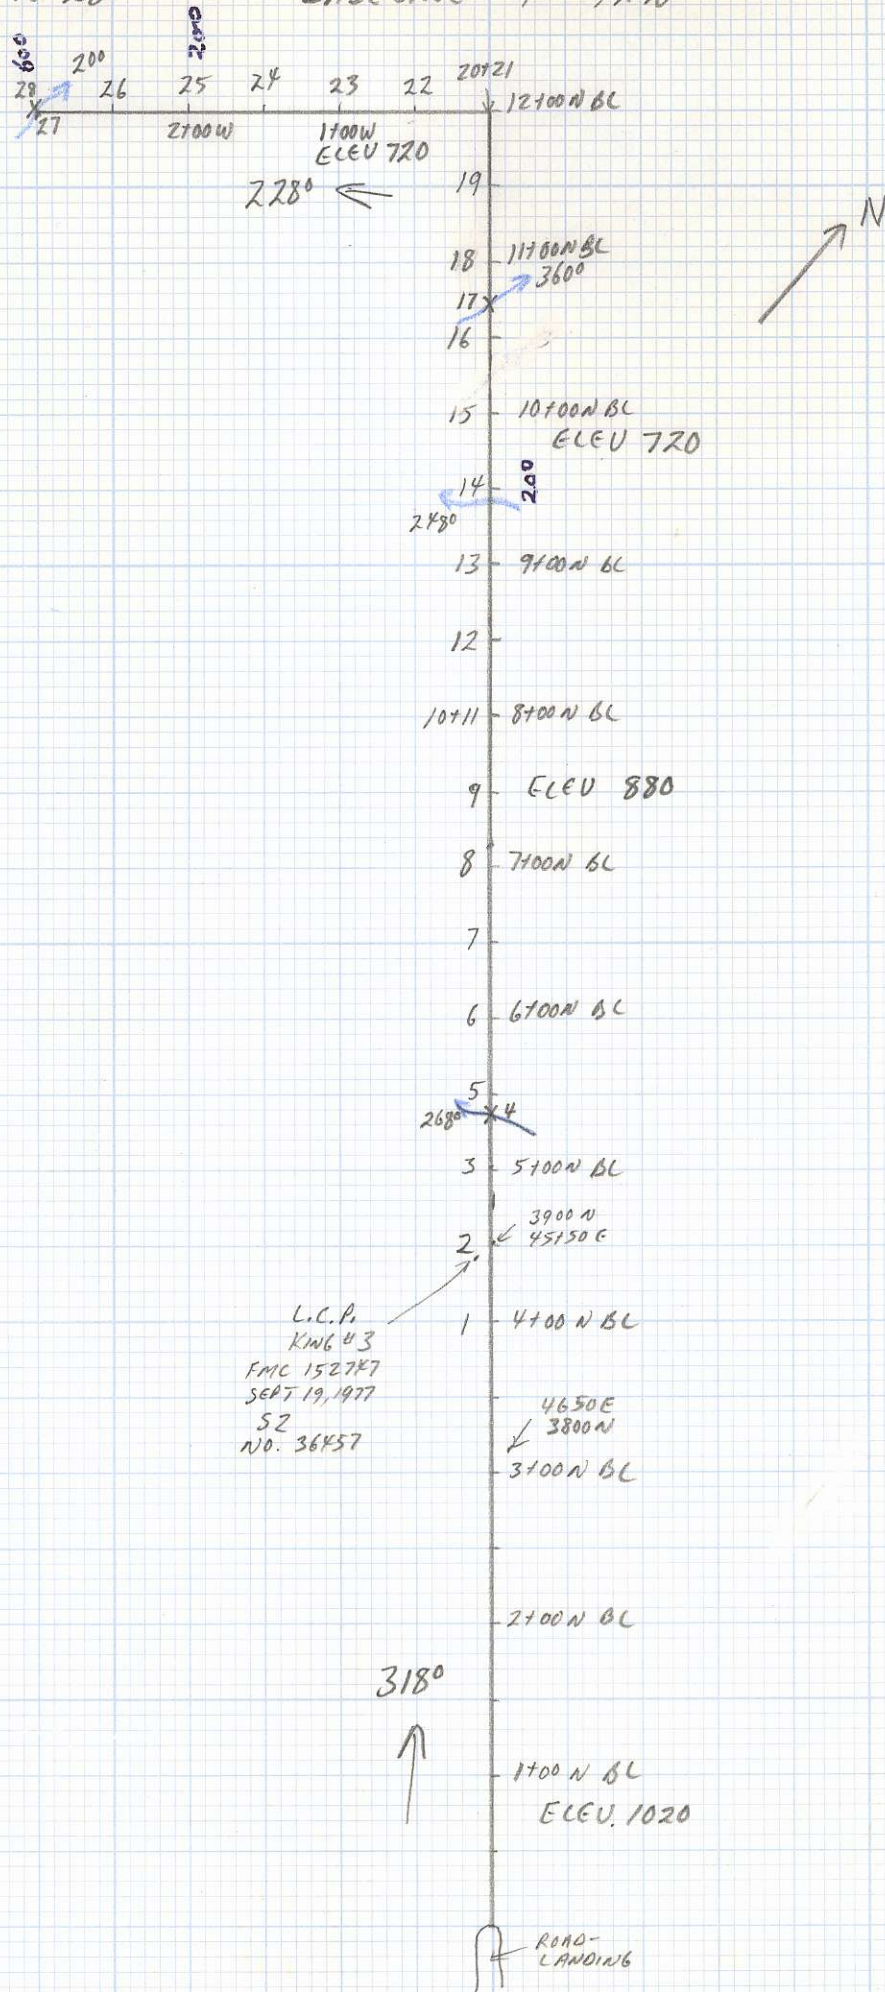 600
200
2000
28
26
25
24
23
22
20+21
12+00N BL
27
2+00W
1+00W
ELEV 720
228°
19
N
18
11+00N BL
360°
17
16
15
10+00N BL
ELEV 720
14
200
248°
13
9+00N BL
12
10+11
8+00N BL
9
ELEV 880
8
7+00N BL
7
6
6+00N BL
5
268°
4
3
5+00N BL
3900 N
45+50 E
2
L.C.P.
KING #3
FMC 152747
SEPT 19, 1977
S2
NO. 36457
1
4+00 N BL
4650E
3800N
3+00N BL
2+00N BL
318°
1+00 N BL
ELEV. 1020
ROAD-
LANDING